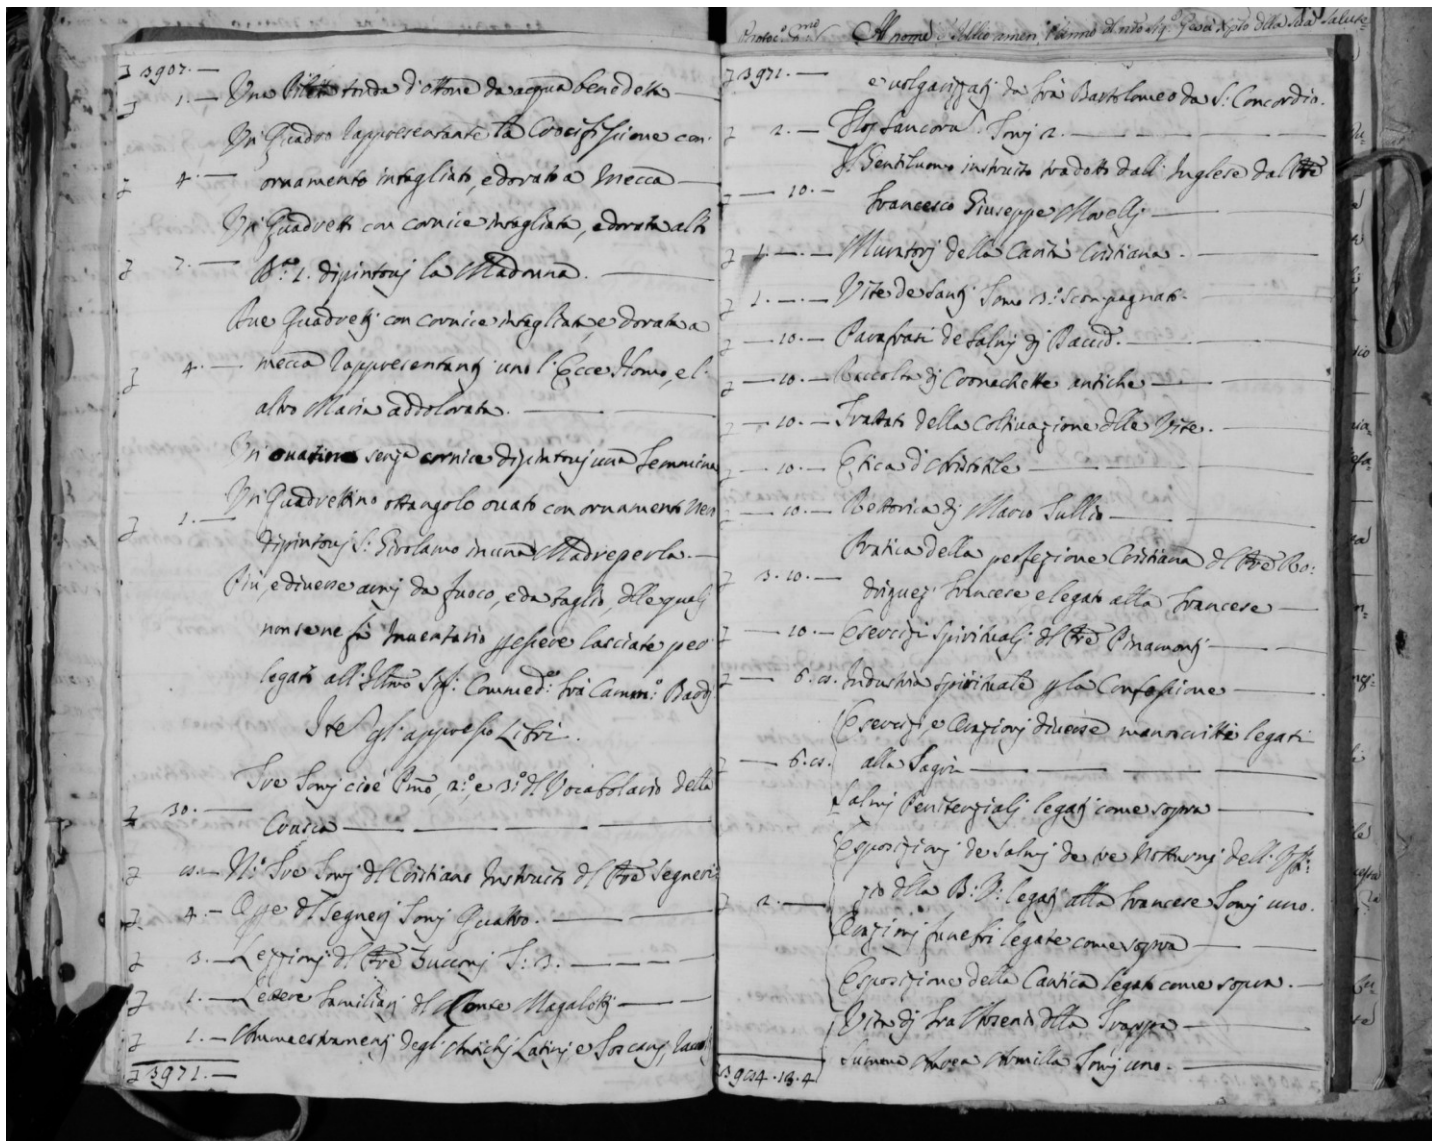 £ 3907.—
£ 1.— Una Piletta tonda d'ottone da acqua benedetta —
Un Quadro rappresentante la Crocifissione con
£ 4.— ornamento intagliato, e dorato a mecca —
Un Quadretto con cornice intagliata, e dorata alto
£ 7.— B.ª 1. dipintovi la Madonna. —
Due Quadretti con cornice intagliata, e dorata a
£ 4.— mecca rappresentanti uno l'Ecce Homo, e l'
altro Maria addolorata. —
Un ovatino senza cornice dipintovi una femmina
Un Quadrettino ottangolo ovato con ornamento nero
£ 1.— dipintovi S. Girolamo in una Madreperla. —
Più, e diverse armi da fuoco, e da taglio, dlle quali
non se ne fà Inventario p essere lasciate per
legato all' Illmo Sig: Commed.e frà Camm.o
Ite gl'appresso Libri.
Tre Tomi cioè Pmo, 2.o, e 3.o dl Vocabolario della
£ 30.— Crusca —
£ — N.o Tre Tomi dl Cristiano Instruito dl Pre Segneri
£ 4.— Opre dl Segneri Tomi Quattro. —
£ 3.— Lezzioni dl Pre Zucconi T: 3. —
£ 1.— Lettere familiari dl Conte Magalotti —
£ 1.— Ammaestramenti degl'Antichi Latini e Toscani,
£ 3971.—
Al nome l'anno dl nro Sig.e Gesù Xpto dlla Sua Salute
£ 3971.—
e volgarizzati da frà Bartolomeo da S: Concordio.
£ 2.— Flos Sanctorum. Tomi 2. —
Il Gentiluomo instruito tradotto dall' Inglese dal Pre
£ — 10.— Francesco Giuseppe Morelli —
£ 1.— — Muratori della Carità Cristiana. —
£ 1.— — Vite de Santi Tomo 3.o scompagnato —
£ — 10.— Parafrasi de Salmi di David. —
£ — 10.— Raccolta di Cronachette antiche —
£ — 10.— Trattato della Coltivazione dlle Vite. —
£ — 10.— Etica d'Aristotile —
£ — 10.— Rettorica di Marco Tullio —
Pratica della perfezione Cristiana dl Pre Ro:
£ 3.10.— driguez francese e legato alla francese —
£ — 10.— Esercizi spirituali dl Pre Pinamonti —
£ — 6.8. Industria spirituale p la Confessione —
Esercizi e Orazioni diverse manoscritte legati
£ — 6.8. alla —
Salmi Penitenziali legati come sopra —
Esposizioni de Salmi de tre Notturni dell' Uffi:
£ 2.— zio dlla B: V: legati alla francese Tomi uno.
Orazioni funebri legate come sopra —
Esposizione della Cantica legato come sopra. —
Vita di fra Arsenio dlla Trappa —
Summa Aurea Armilla Tomi uno. —
3984.13.4